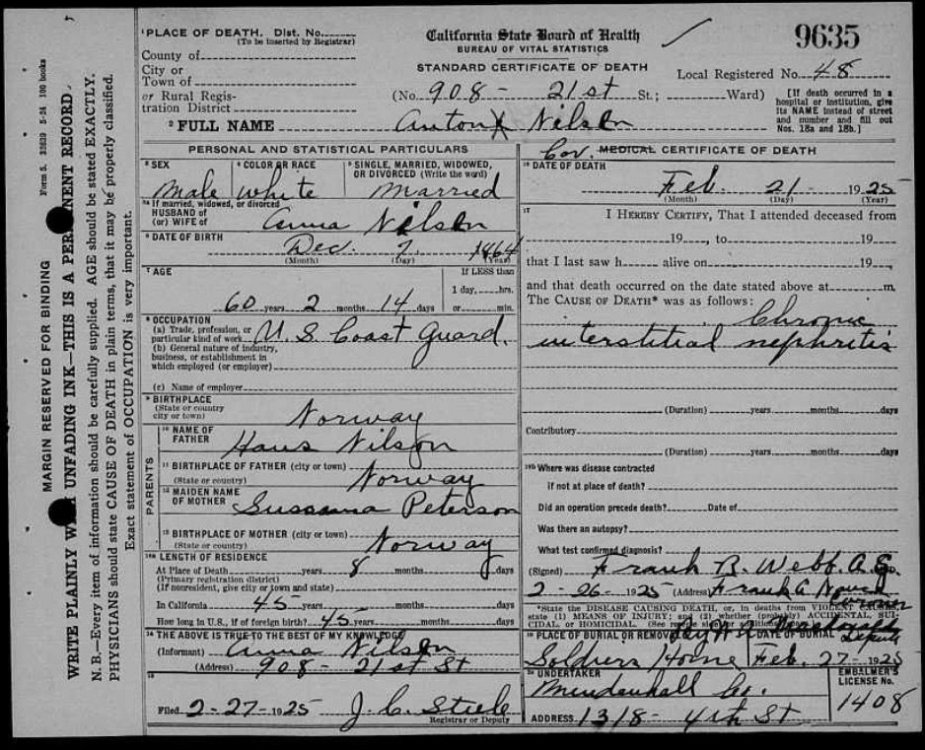 ¹PLACE OF DEATH. Dist. No.
(To be inserted by Registrar)
County of
City or
Town of
or Rural Regis-
tration District
California State Board of Health
BUREAU OF VITAL STATISTICS
STANDARD CERTIFICATE OF DEATH
9635
Local Registered No. 48
(No. 908 - 21st St.; Ward)
[If death occurred in a
hospital or institution, give
its NAME instead of street
and number and fill out
Nos. 18a and 18b.]
² FULL NAME Anton Nilsen
PERSONAL AND STATISTICAL PARTICULARS
³ SEX
Male
⁴ COLOR OR RACE
White
⁵ SINGLE, MARRIED, WIDOWED,
OR DIVORCED (Write the word)
Married
⁵ᵃ If married, widowed, or divorced
HUSBAND of
(or) WIFE of
Anna Nilsen
⁶ DATE OF BIRTH
Dec. 7 1864
(Month) (Day) (Year)
⁷ AGE
If LESS than
1 day, hrs.
60 years 2 months 14 days or min.
⁸ OCCUPATION
(a) Trade, profession, or
particular kind of work U. S. Coast Guard.
(b) General nature of industry,
business, or establishment in
which employed (or employer)
(c) Name of employer
⁹ BIRTHPLACE
(State or country
city or town)
Norway
PARENTS
¹⁰ NAME OF
FATHER
Hans Nilson
¹¹ BIRTHPLACE OF FATHER (city or town)
(State or country)
Norway
¹² MAIDEN NAME
OF MOTHER
Sussanna Peterson
¹³ BIRTHPLACE OF MOTHER (city or town)
(State or country)
Norway
LENGTH OF RESIDENCE
At Place of Death years 8 months days
(Primary registration district)
(If nonresident, give city or town and state)
In California 45 years months days
How long in U.S., if of foreign birth? 45 years months days
¹⁴ THE ABOVE IS TRUE TO THE BEST OF MY KNOWLEDGE
(Informant) Anna Nilsen
(Address) 908 - 21st St
¹⁵
Filed 2-27-1925 J. C. Steele
Registrar or Deputy
Cor. MEDICAL CERTIFICATE OF DEATH
¹⁶ DATE OF DEATH
Feb. 21 - 1925
(Month) (Day) (Year)
¹⁷
I HEREBY CERTIFY, That I attended deceased from
19 , to 19
that I last saw h alive on 19 ,
and that death occurred on the date stated above at m.
The CAUSE OF DEATH* was as follows:
Chronic
interstitial nephritis
(Duration) years months days
Contributory
(Duration) years months days
¹⁸ᵇ Where was disease contracted
if not at place of death?
Did an operation precede death? Date of
Was there an autopsy?
What test confirmed diagnosis?
(Signed) Frank B. Webb
2-26-1925 (Address) Frank A
*State the DISEASE CAUSING DEATH, or, in deaths from VIOLENT CAUSES,
state (1) MEANS OF INJURY; and (2) whether (probably) ACCIDENTAL, SUI-
CIDAL, or HOMICIDAL.
Deputy
¹⁹ PLACE OF BURIAL OR REMOVAL
Soldiers Home
DATE OF BURIAL
Feb. 27-1925
²⁰ UNDERTAKER
Mendenhall Co.
ADDRESS 1318 - 4th St
EMBALMER'S
LICENSE No.
1408
MARGIN RESERVED FOR BINDING
WRITE PLAINLY WITH UNFADING INK—THIS IS A PERMANENT RECORD.
N. B.—Every item of information should be carefully supplied. AGE should be stated EXACTLY.
PHYSICIANS should state CAUSE OF DEATH in plain terms, that it may be properly classified.
Exact statement of OCCUPATION is very important.